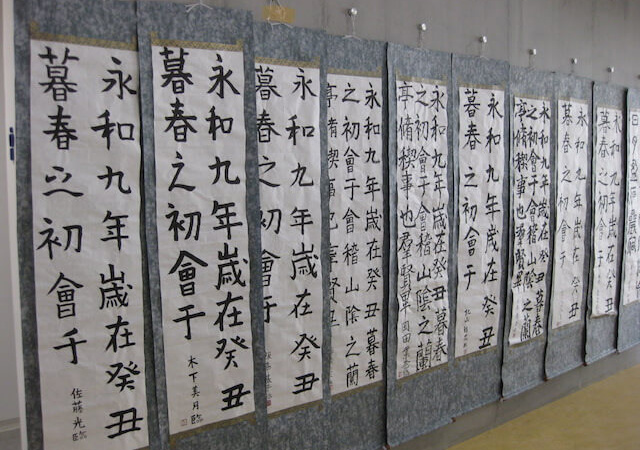 永和九年歳在癸丑
暮春之初會于
佐藤光臨
永和九年歳在癸丑
暮春之初會于
木下美月臨
永和九年歳在癸丑
暮春之初會于
永和九年歳在癸丑暮春
之初會于會稽山陰之蘭
亭脩禊事也羣賢
永和九年歳在癸丑暮春
之初會于會稽山陰之蘭
亭脩禊事也羣賢畢
永和九年歳在癸丑
暮春之初會于
永和九年歳在癸丑暮春
之初會于會稽山陰之蘭
亭脩禊事也羣賢畢
永和九年歳在癸丑
暮春之初會于
永和九年歳在
暮春之初會于